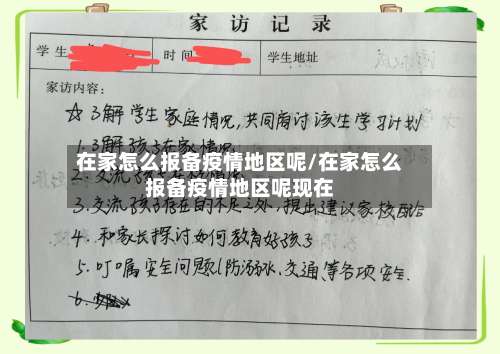 家访记录
学生
时间
学生地址
家访内容：
☆ 3解学生家庭情况,共同商讨该生学习计划
1.3解孩子在家情况
在家怎么报备疫情地区呢/在家怎么
报备疫情地区呢现在
3.交流孩子存在的不足之处,提出建议家校配合
4.和家长探讨如何教育好孩子
5.叮嘱安全问题(防溺水.交通等各项安全.
6.